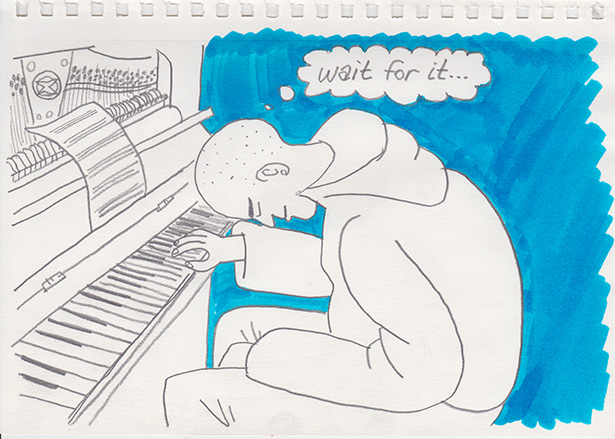 wait for it...